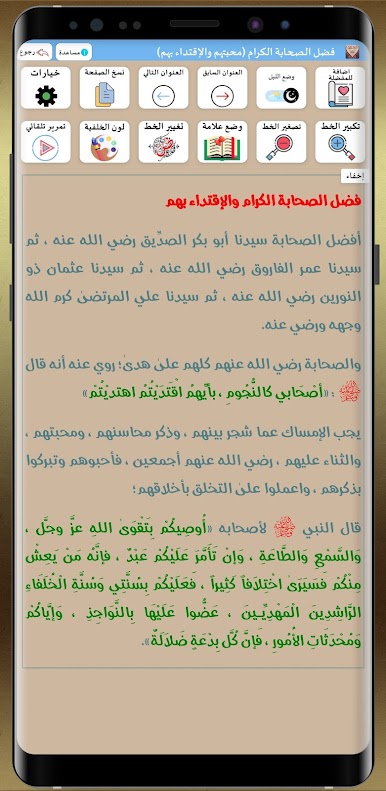 فضل الصحابة الكرام (محبتهم والإقتداء بهم)
مساعدة
رجوع
اضافة للمفضلة
وضع الليل
العنوان السابق
العنوان التالي
نسخ الصفحة
خيارات
تكبير الخط
تصغير الخط
وضع علامة
تغيير الخط
لون الخلفية
تمرير تلقائي
إخفاء
فضل الصحابة الكرام والإقتداء بهم
أفضل الصحابة سيدنا أبو بكر الصدِّيق رضي الله عنه ، ثم
سيدنا عمر الفاروق رضي الله عنه ، ثم سيدنا عثمان ذو
النورين رضي الله عنه ، ثم سيدنا علي المرتضىٰ كرم الله
وجهه ورضي عنه.
والصحابة رضي الله عنهم كلهم علىٰ هدىً؛ روي عنه أنه قال
ﷺ : «أصْحَابي كالنُّجُومِ ، بأيِّهِمْ اقْتَدَيْتُمْ اهتديْتُمْ»
يجب الإمساك عما شجر بينهم ، وذكر محاسنهم ، ومحبتهم ،
والثناء عليهم ، رضي الله عنهم أجمعين ، فأحبوهم وتبركوا
بذكرهم ، واعملوا علىٰ التخلق بأخلاقهم؛
قال النبي ﷺ لأصحابه «أُوصِيكُمْ بِتَقْوَىٰ اللهِ عزَّ وجلَّ ،
وَالسَّمْعِ وَالطَّاعَةِ ، وَإِن تَأَمَّرَ عَلَيْكُمْ عَبْدٌ ، فإنَّهُ مَنْ يَعِشْ
مِنكُمْ فَسَيَرَىٰ اخْتِلَافاً كَثِيراً ، فَعَلَيْكُمْ بِسُنَّتِي وَسُنَّةِ الْخُلَفَاءِ
الرَّاشِدِينَ الْمَهْدِيِّـينَ ، عَضُّوا عَلَيْهَا بِالنَّوَاجِذِ ، وَإِيَّاكُمْ
وَمُحْدَثَاتِ الأُمُورِ ، فَإِنَّ كُلَّ بِدْعَةٍ ضَلَالَةٌ».